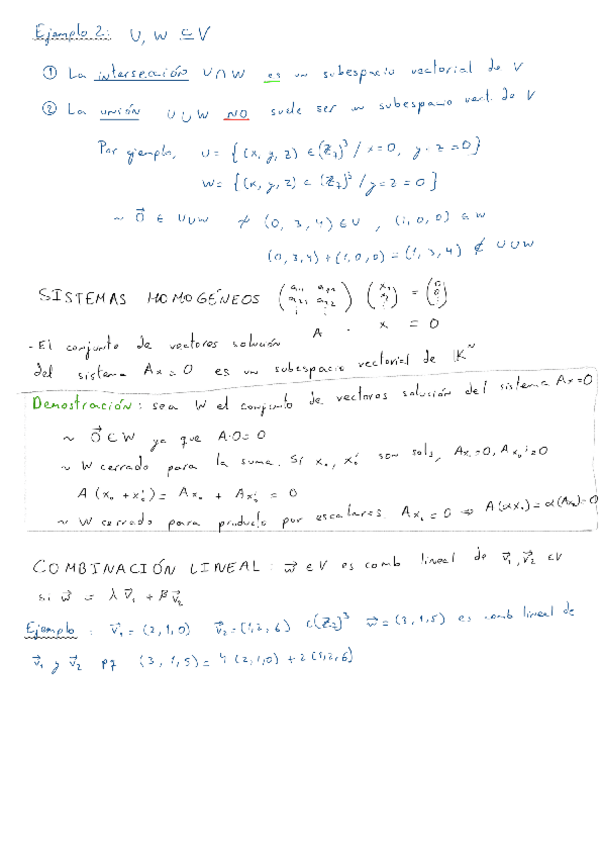 Ejemplo 2: U, W ⊆ V
① La intersección U∩W es un subespacio vectorial de V
② La unión U∪W NO suele ser un subespacio vect. de V
Por ejemplo, U = {(x, y, z) ∈ (Z₇)³ / x=0, y+z=0}
W = {(x, y, z) ∈ (Z₇)³ / y=z=0}
~ 0⃗ ∈ U∪W (0, 3, 4) ∈ U, (1, 0, 0) ∈ W
(0,3,4) + (1,0,0) = (1, 3, 4) ∉ U∪W
SISTEMAS HOMOGÉNEOS
A · x = 0
- El conjunto de vectores solución
del sistema Ax = 0 es un subespacio vectorial de Kⁿ
Demostración: sea W el conjunto de vectores solución del sistema Ax=0
~ 0⃗ ∈ W ya que A·0=0
~ W cerrado para la suma. Si x₀, x₀' son sols, Ax₀=0, Ax₀'=0
A (x₀ + x₀') = Ax₀ + Ax₀' = 0
~ W cerrado para producto por escalares. Ax₀ = 0 ⇒ A(αx₀) = α(Ax₀) = 0
COMBINACIÓN LINEAL: w⃗ ∈ V es comb lineal de v⃗₁, v⃗₂ ∈ V
si w⃗ = λv⃗₁ + βv⃗₂
Ejemplo: v⃗₁ = (2,1,0) v⃗₂ = (1,2,6) ∈ (Z₇)³ w⃗ = (3,1,5) es comb lineal de
v⃗₁ y v⃗₂ pq (3,1,5) = 4(2,1,0) + 2(1,2,6)